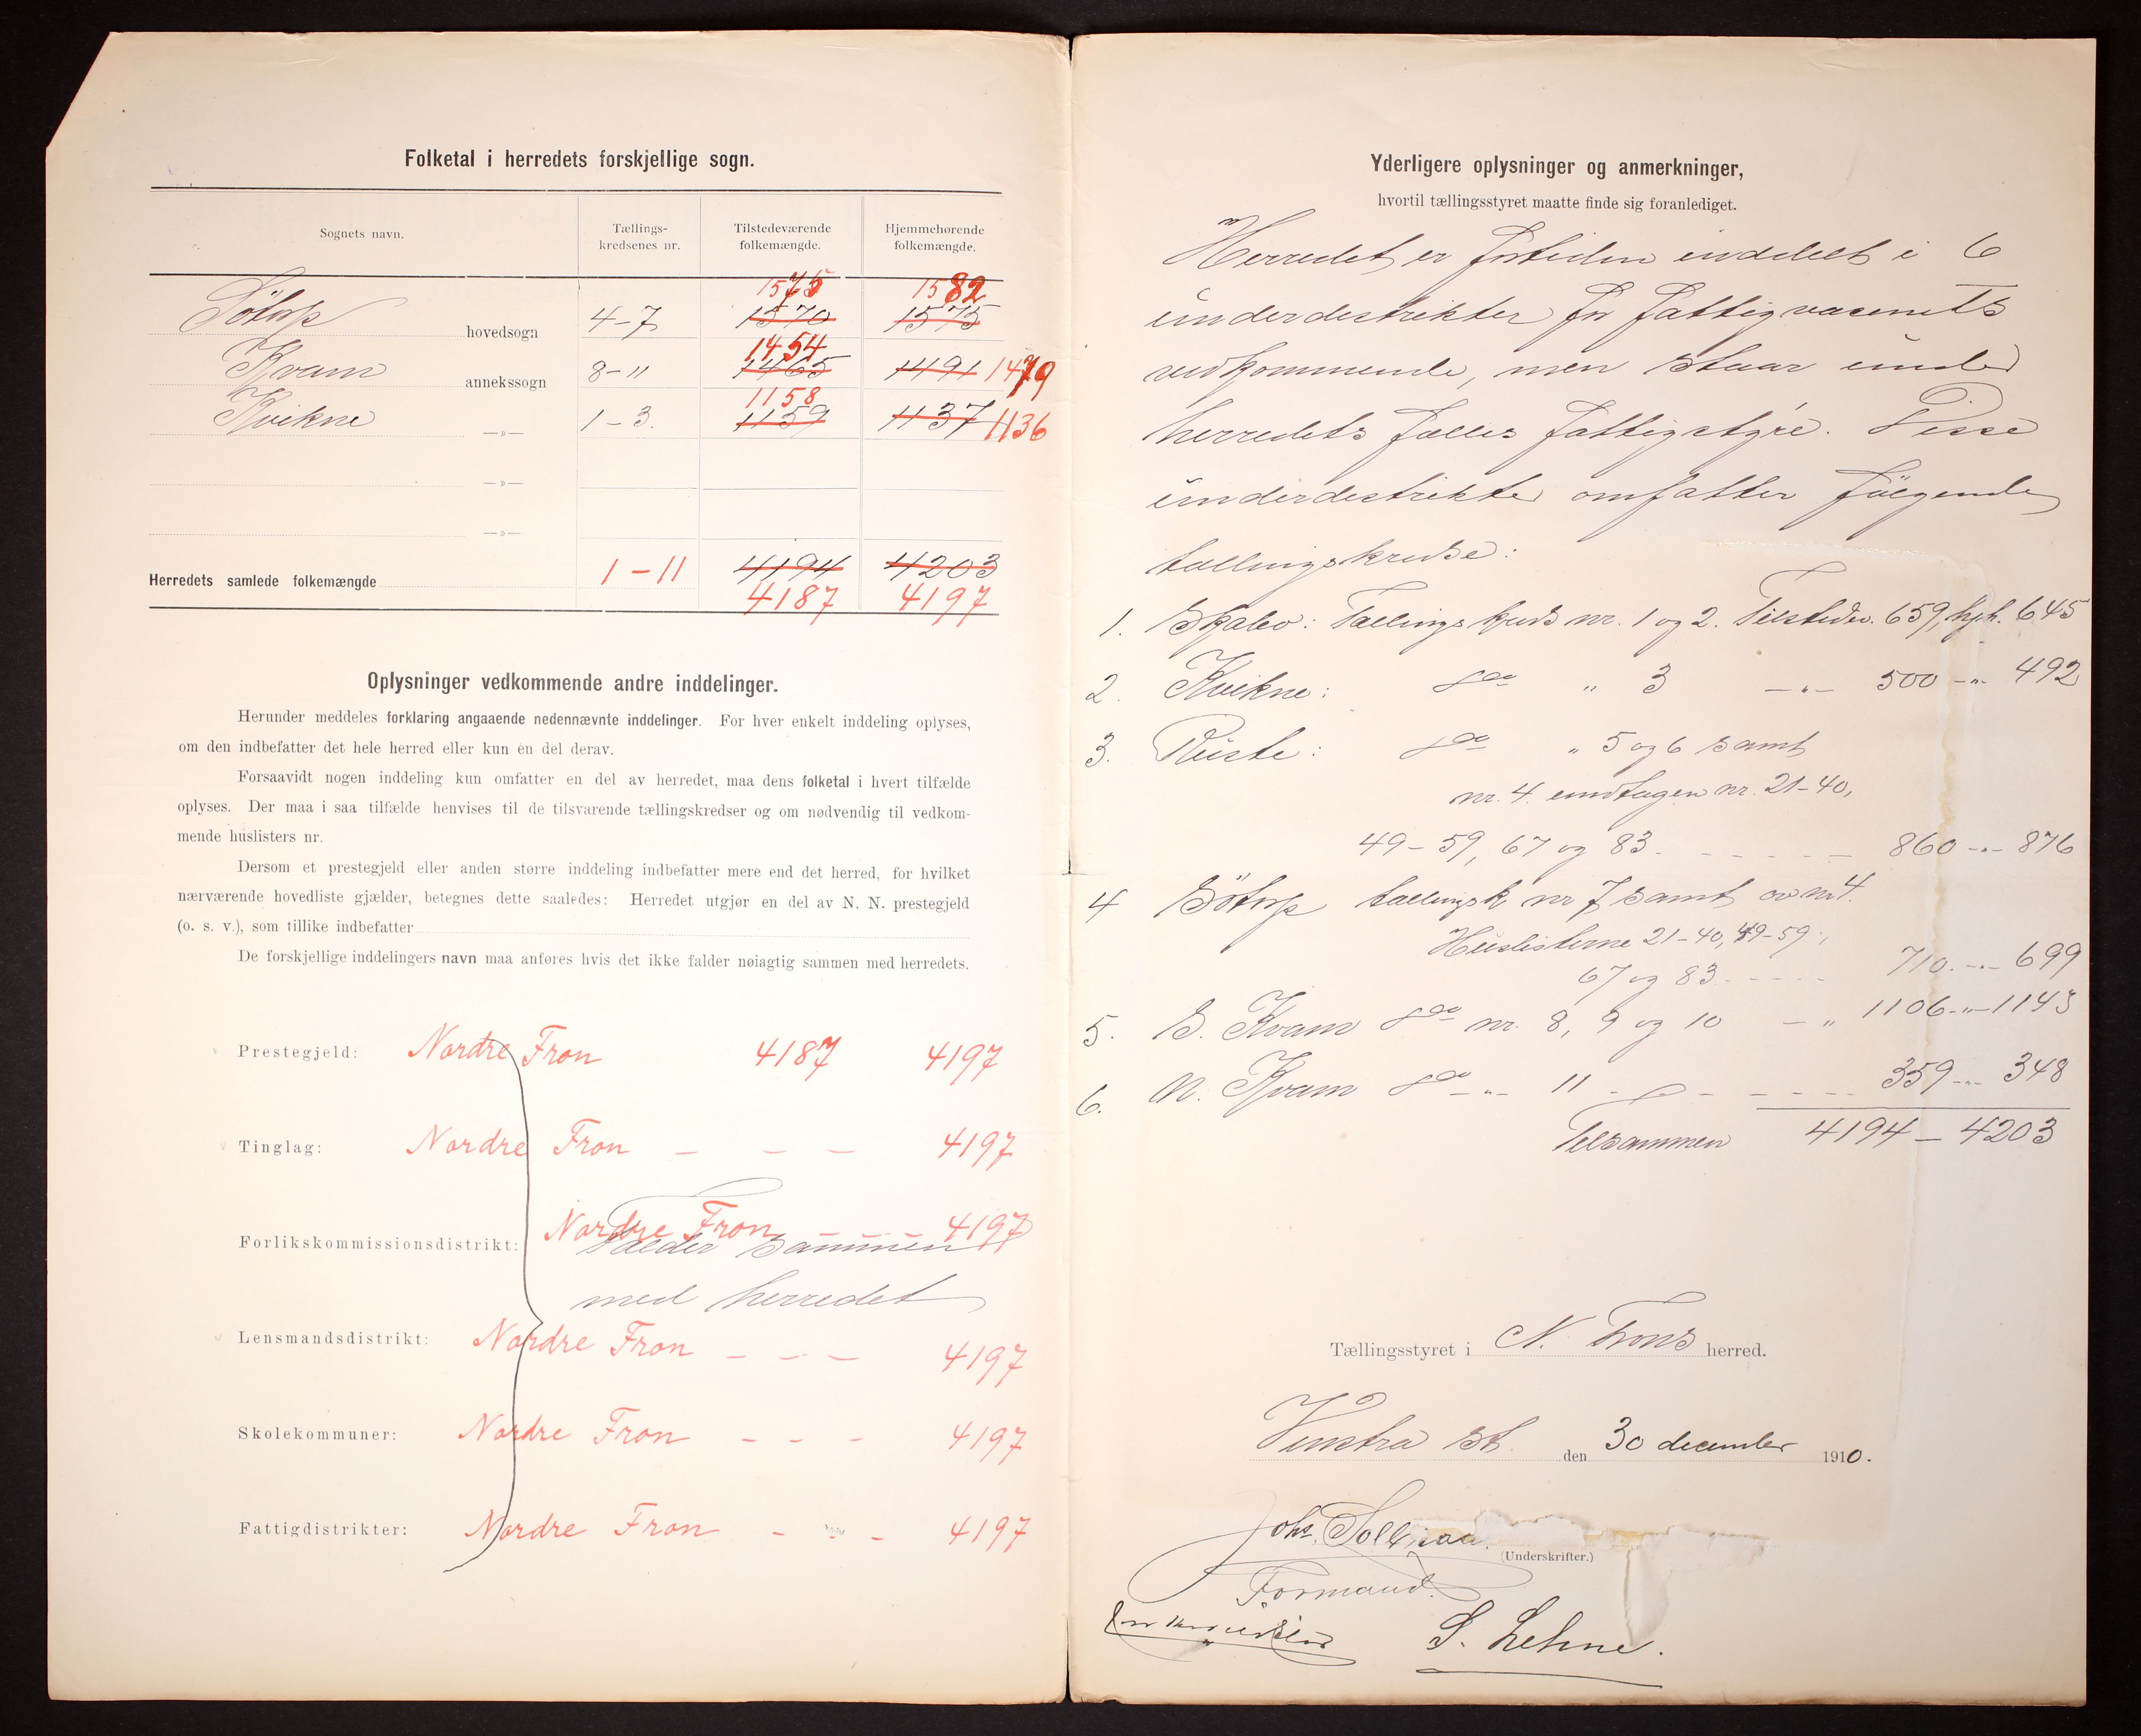 Folketal i herredets forskjellige sogn.
Sognets navn. Tællings-kredsenes nr. Tilstedeværende folkemængde. Hjemmehørende folkemængde.
1575 1582
Sötorp hovedsogn 4-7 1570 1575
1454
Kvam annekssogn 8-11 1465 1491 1479
1158
Kvikne —»— 1-3. 1159 1137 1136
—»—
—»—
Herredets samlede folkemængde 1-11 4194 4203
4187 4197
Oplysninger vedkommende andre inddelinger.
Herunder meddeles forklaring angaaende nedennævnte inddelinger. For hver enkelt inddeling oplyses,
om den indbefatter det hele herred eller kun en del derav.
Forsaavidt nogen inddeling kun omfatter en del av herredet, maa dens folketal i hvert tilfælde
oplyses. Der maa i saa tilfælde henvises til de tilsvarende tællingskredser og om nødvendig til vedkom-
mende huslisters nr.
Dersom et prestegjeld eller anden større inddeling indbefatter mere end det herred, for hvilket
nærværende hovedliste gjælder, betegnes dette saaledes: Herredet utgjør en del av N. N. prestegjeld
(o. s. v.), som tillike indbefatter
De forskjellige inddelingers navn maa anføres hvis det ikke falder nøiagtig sammen med herredets.
Prestegjeld: Nordre Fron 4187 4197
Tinglag: Nordre Fron — — — 4197
Forlikskommissionsdistrikt: Nordre Fron — — — 4197
Falder sammen
med herredet
Lensmandsdistrikt: Nordre Fron — — — 4197
Skolekommuner: Nordre Fron — — — 4197
Fattigdistrikter: Nordre Fron — — — 4197
Yderligere oplysninger og anmerkninger,
hvortil tællingsstyret maatte finde sig foranlediget.
Herredet er fortiden inddelt i 6
underdistrikter for fattigvæsenets
vedkommende, men staar under
herredets fælles fattigstyre. Disse
underdistrikter omfatter følgende
tællingskredse:
1. Skabo: Tællingskreds nr. 1 og 2. Tilstedev. 659, hjh. 645
2. Kvikne: do " 3 —"— 500 —"— 492
3. Ruste: do " 5 og 6 samt
nr. 4. undtagen nr. 21-40,
49-59, 67 og 83. — — — — — 860 —"— 876
4 Sötorp tællingsk nr 7 samt av nr 4.
Huslisterne 21-40, 49-59,
67 og 83. — — — — 710. —"— 699
5. S. Kvam do nr. 8, 9 og 10 — " 1106 —"— 1143
6. N. Kvam do —"— 11 — — — — — 359 —"— 348
Tilsammen 4194 — 4203
Tællingsstyret i N. Frons herred.
Vinstra St. den 30 december 1910.
Johs.
(Underskrifter.)
Formand.
S. Lehne.